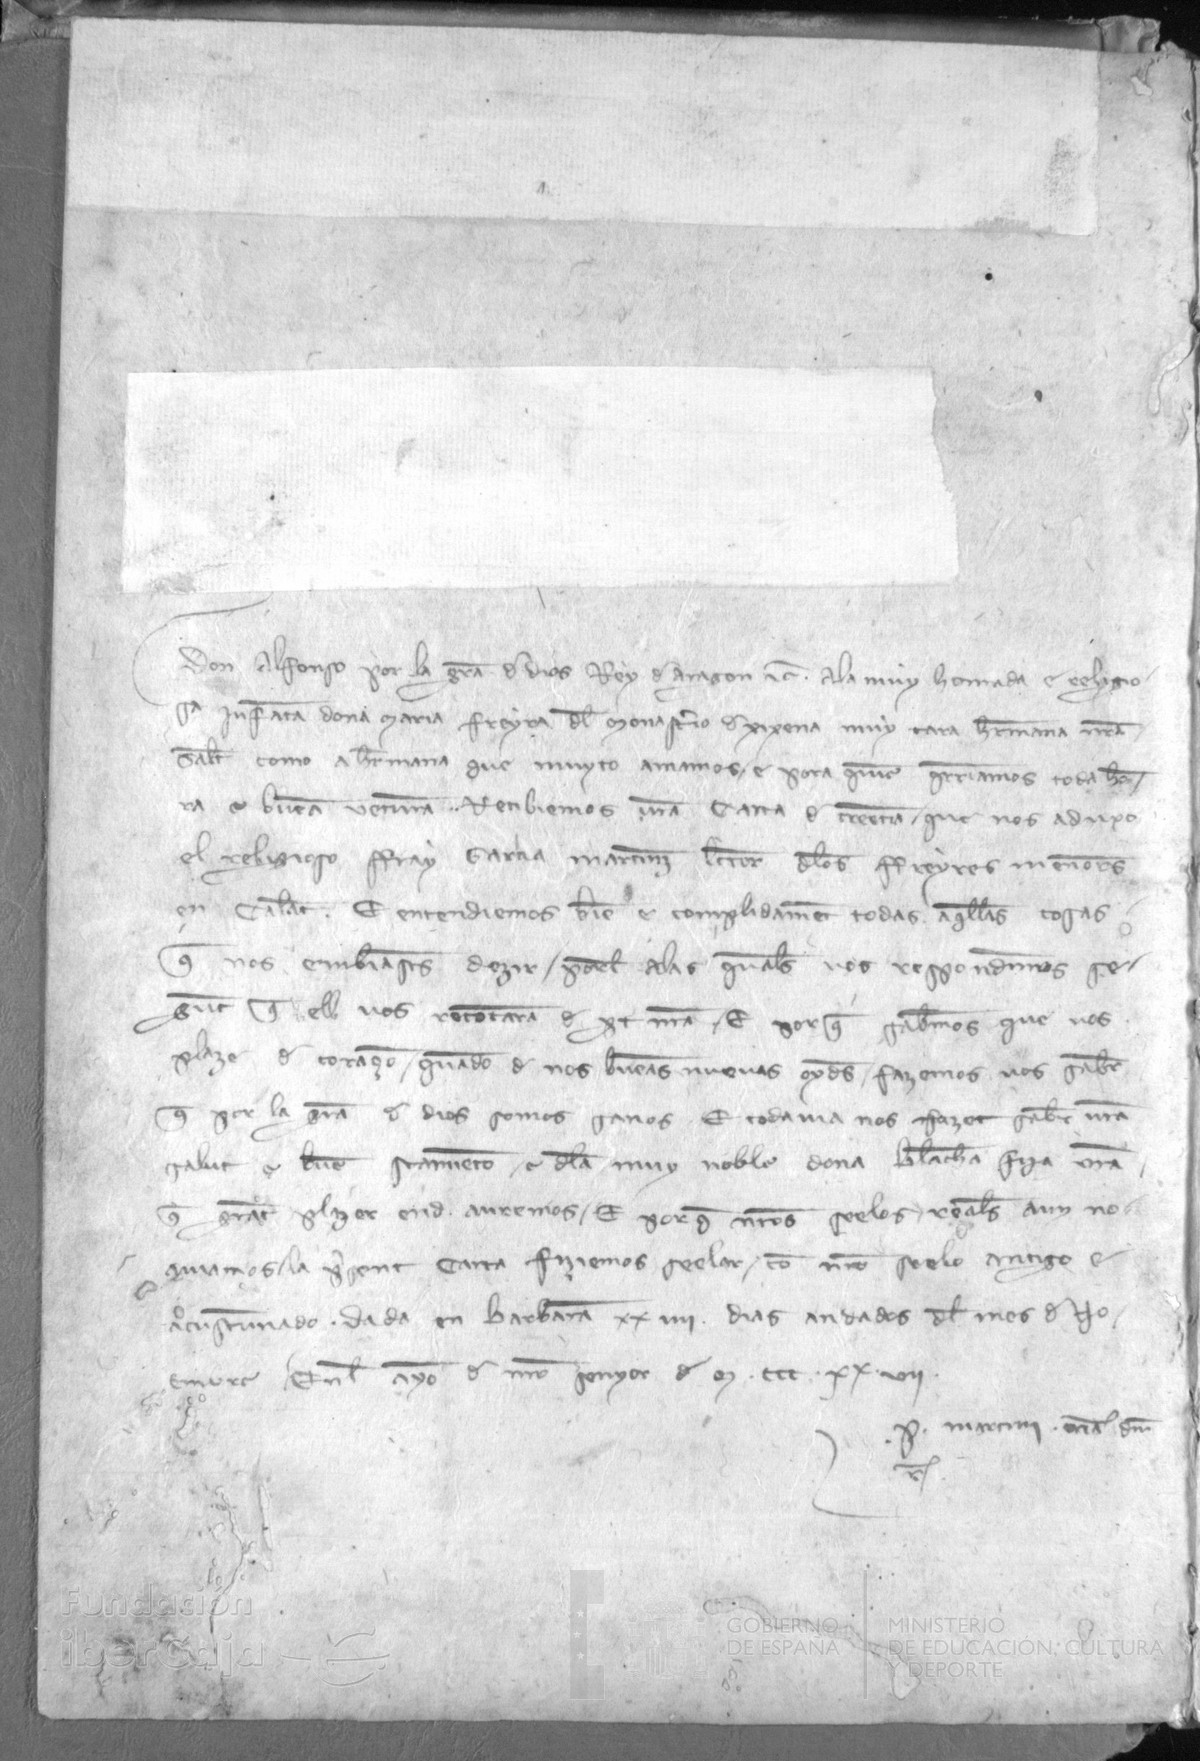 Don Alfonso por la gra de dios Rey d aragon etc. Ala muy honrada e religio
sa Infata dona Maria freyra dl monasterio d xixena muy cara hermana nra
Salut como a hermana que muyto amamos e pora quie querriamos toda ho
ra e buea vetura. Recibiemos vra Carta d creeça que nos aduxo
el religioso ffray Garcia martinz dlos ffreyres menors
en Calat. E entendiemos bie e complidamet todas aqllas cosas
q nos embiasts dezir por el alas quals vos respondimos se
gut q ell vos recotara d pt nra E porq sabemos que vos
plaze d coraço quado d nos bueas nuevas oyds fazemos vos saber
q por la gra d dios somos sanos E todavia nos fazet saber vra
salut e bue stamieto e dla muy noble dona blacha fija vra
q grat plazer end auremos E porq nros seelos reals aun no
aviamos la psent Carta fiziemos seelar co nro seelo antigo e
acustunado. dada en Barbara xx iiii dias andados dl mes d No
embre Enl ayo d nro senyor d M ccc xx vii
P. martini dni
R
Fundación
iberCaja
GOBIERNO
DE ESPAÑA
MINISTERIO
DE EDUCACIÓN, CULTURA
Y DEPORTE